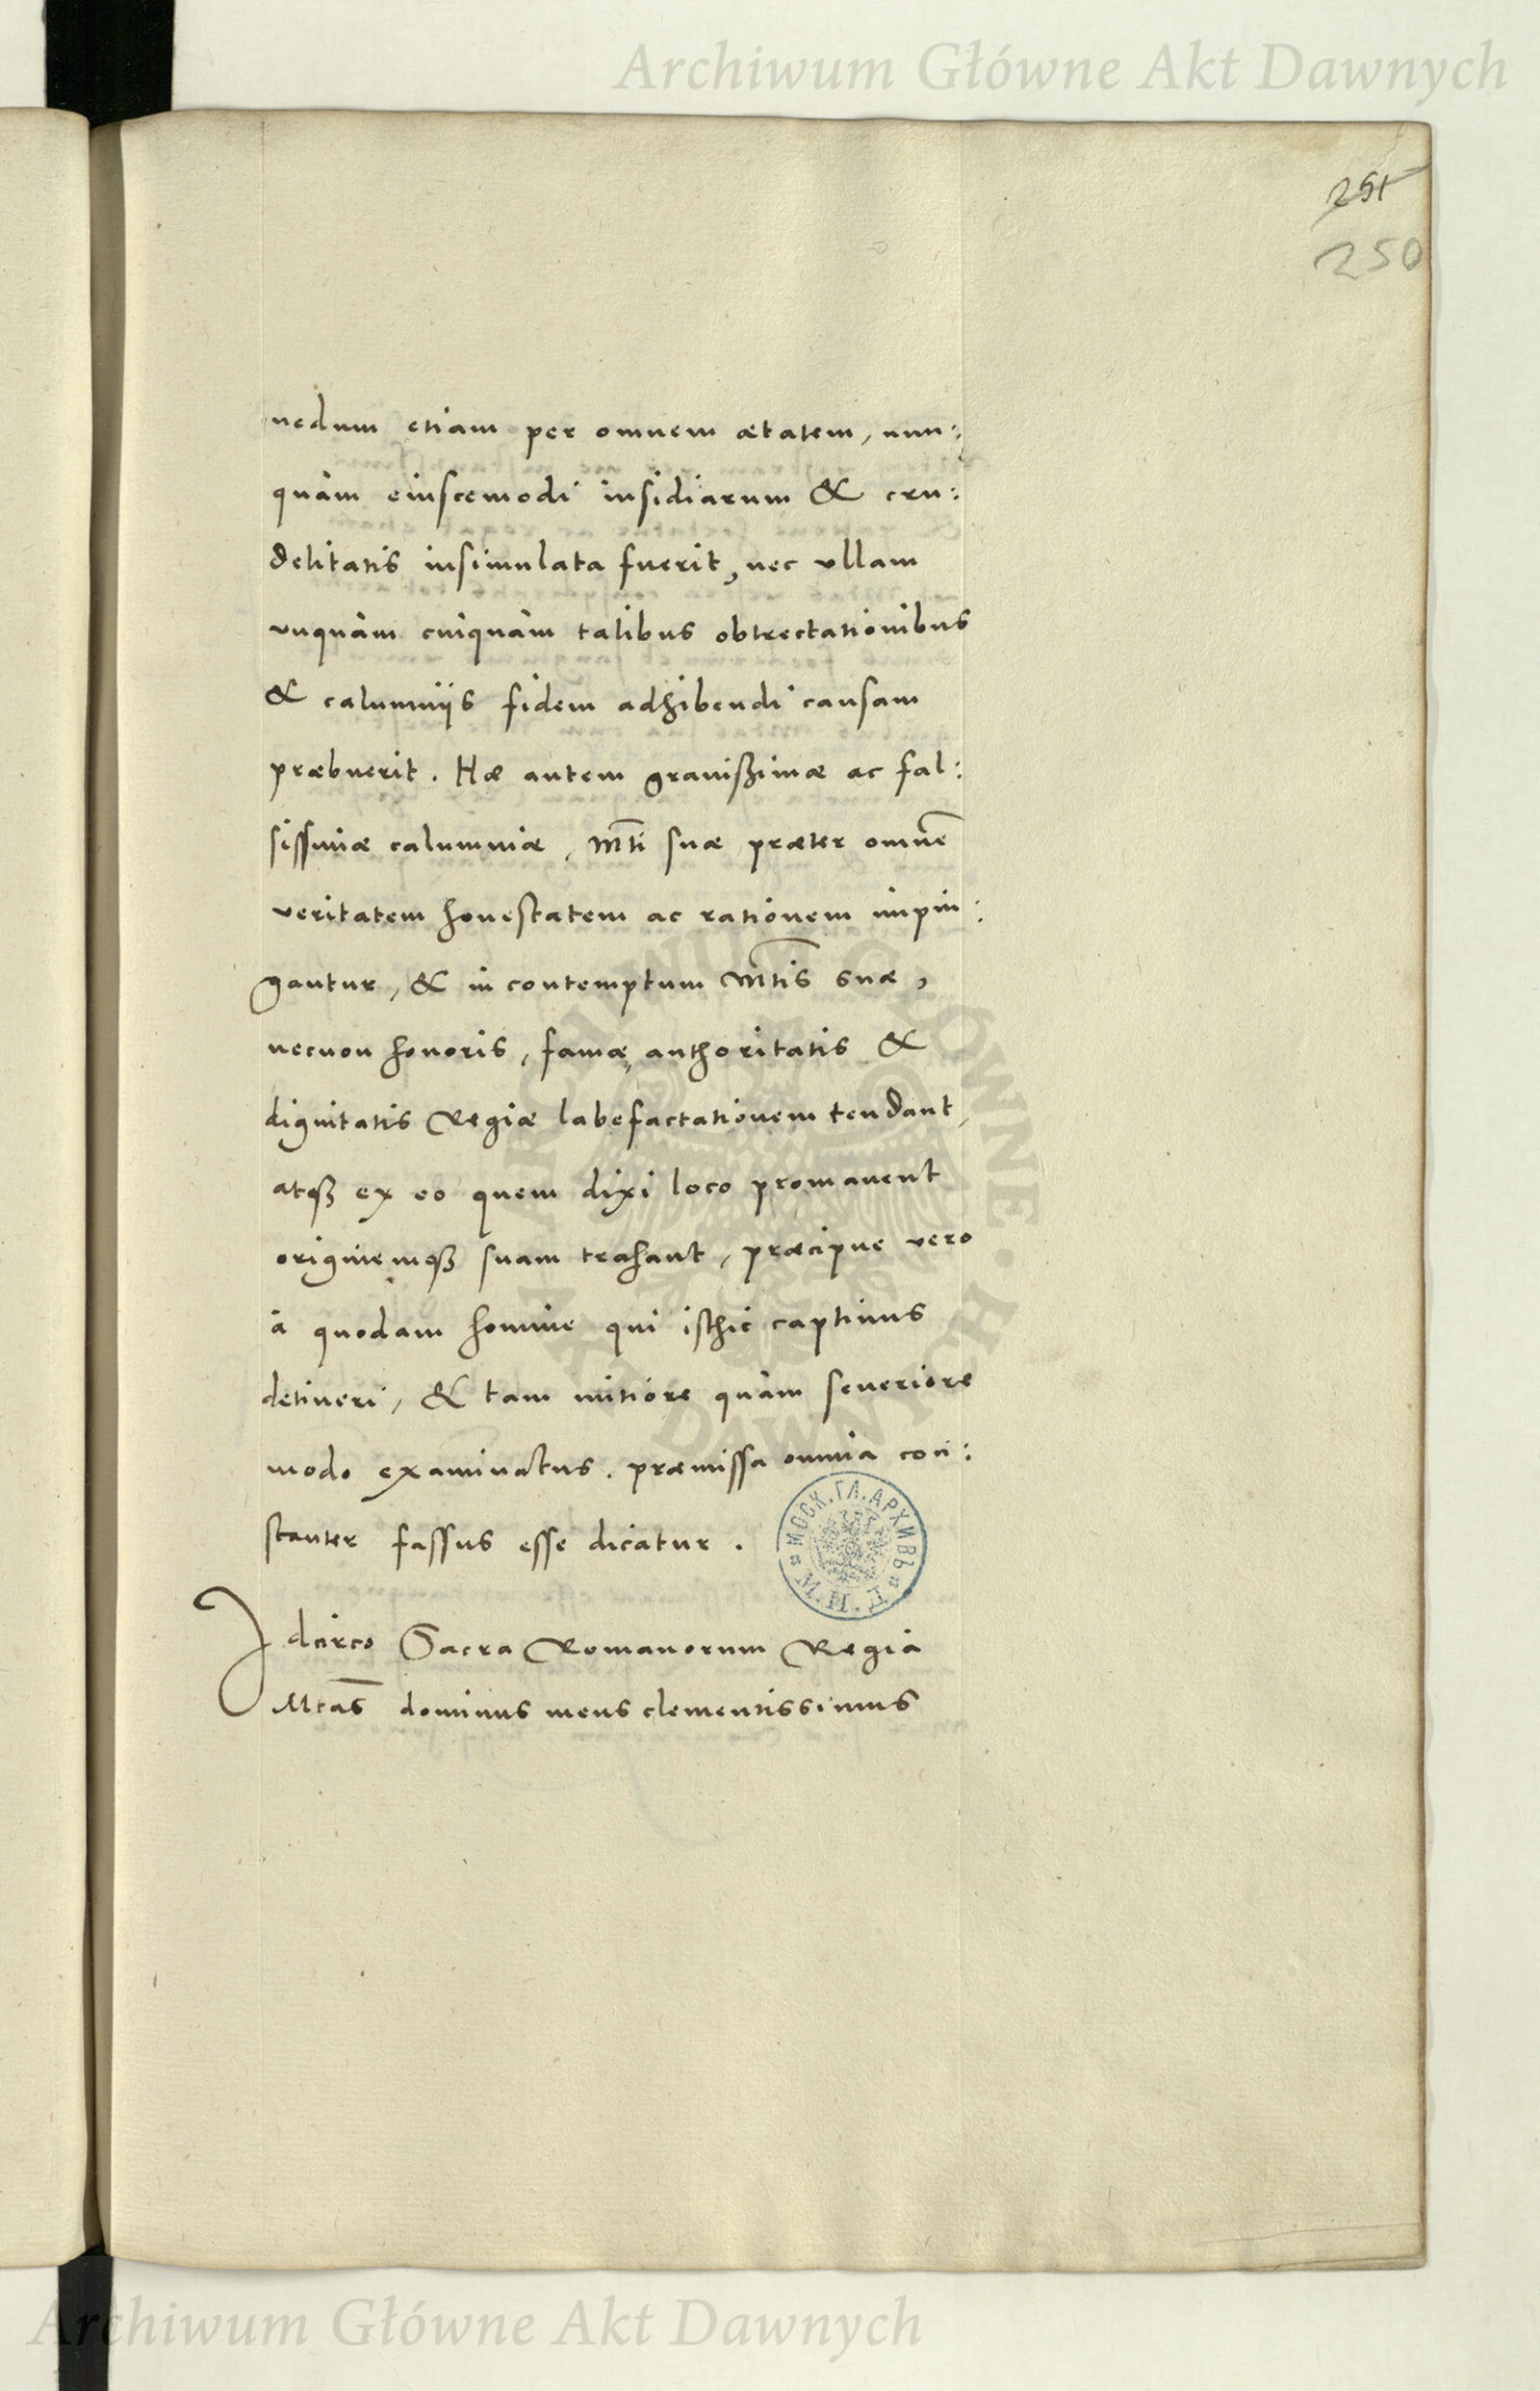 Archiwum Główne Akt Dawnych
251
250
nedum etiam per omnem ætatem, nun:
quàm eiuscemodi insidiarum & cru:
delitatis insimulata fuerit, nec vllam
vnquàm cuiquàm talibus obtrectationibus
& calumnijs fidem adhibendi causam
præbuerit. Hæ autem grauißimæ ac fal:
sissimæ calumniæ, Mti suæ præter omnē
veritatem honestatem ac rationem impin:
gantur, & in contemptum Mtis suæ,
necnon honoris, famæ, authoritatis &
dignitatis Regiæ labefactationem tendant,
atqȝ ex eo quem dixi loco promanent
originemqȝ suam trahant, præcipue vero
à quodam homine qui isthic captiuus
detineri, & tam mitiore quàm seueriore
modo examinatus. præmissa omnia con:
stanter fassus esse dicatur.
Idcirco Sacra Romanorum Regia
Mtas dominus meus clementissimus
МОСК. ГЛ. АРХИВЪ М. И. Д.
ARCHIWUM GŁÓWNE AKT DAWNYCH
Archiwum Główne Akt Dawnych